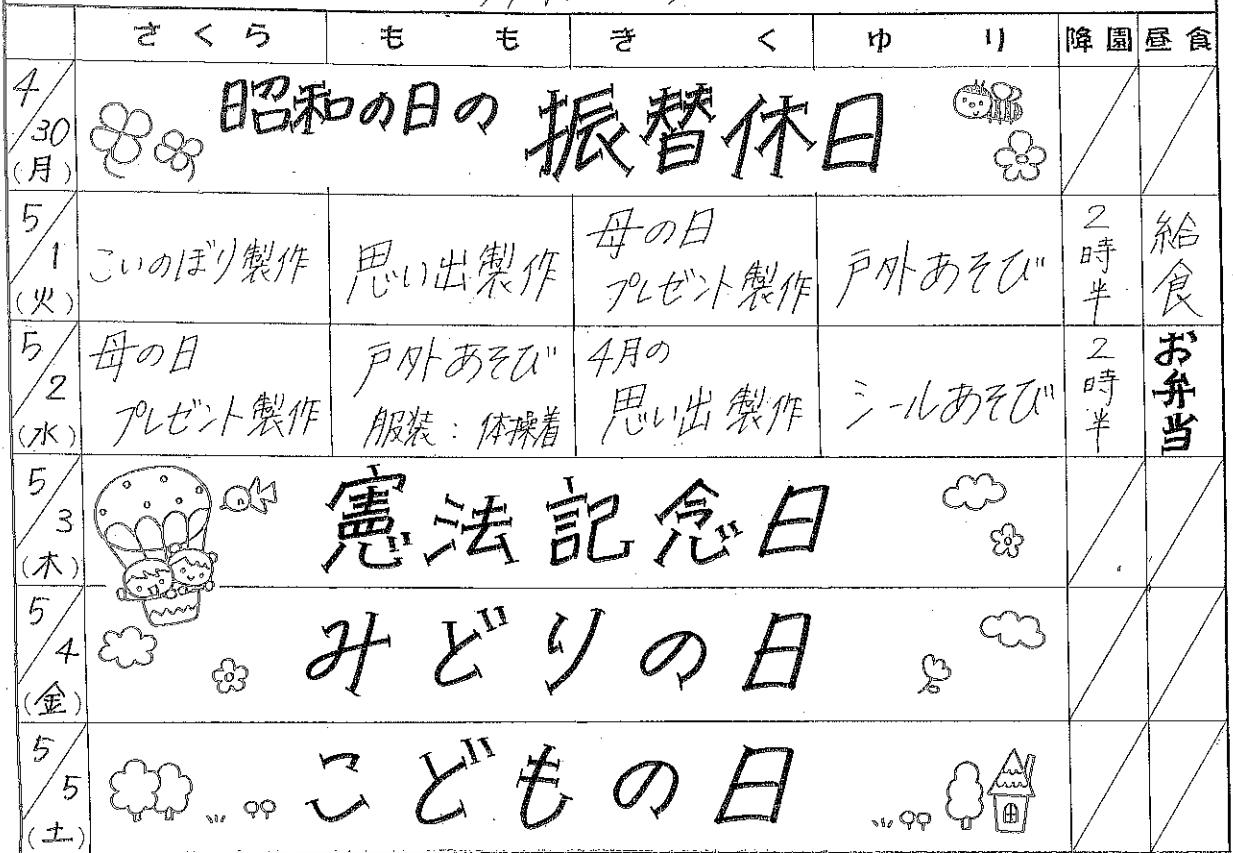 さくら もも きく ゆり 降園 昼食
4/30(月) 昭和の日の 振替休日
5/1(火) こいのぼり製作 思い出製作 母の日 プレゼント製作 戸外あそび 2時半 給食
5/2(水) 母の日 プレゼント製作 戸外あそび 服装:体操着 4月の 思い出製作 シールあそび 2時半 お弁当
5/3(木) 憲法記念日
5/4(金) みどりの日
5/5(土) こどもの日